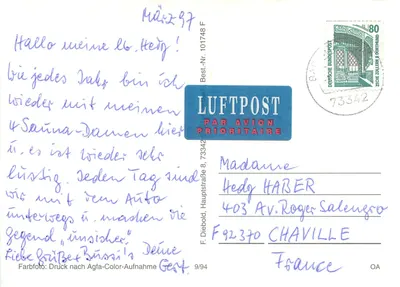 März 97
Hallo meine lb. Hedy!
Wie jedes Jahr bin ich
wieder mit meinen
4 Sauna-Damen hier
u. es ist wieder sehr
lustig. Jeden Tag sind
wir mit dem Auto
unterwegs u. machen die
Gegend „unsicher."
Liebe Grüße + Bussi's Deine
Gert.
Farbfoto: Druck nach Agfa-Color-Aufnahme
9/94
F. Diebold, Hauptstraße 8, 73342
Best.-Nr. 101748 F
LUFTPOST
PAR AVION
PRIORITAIRE
80
73342
Madame
Hedy HABER
403 Av. Roger Salengro
F 92370 CHAVILLE
France
OA